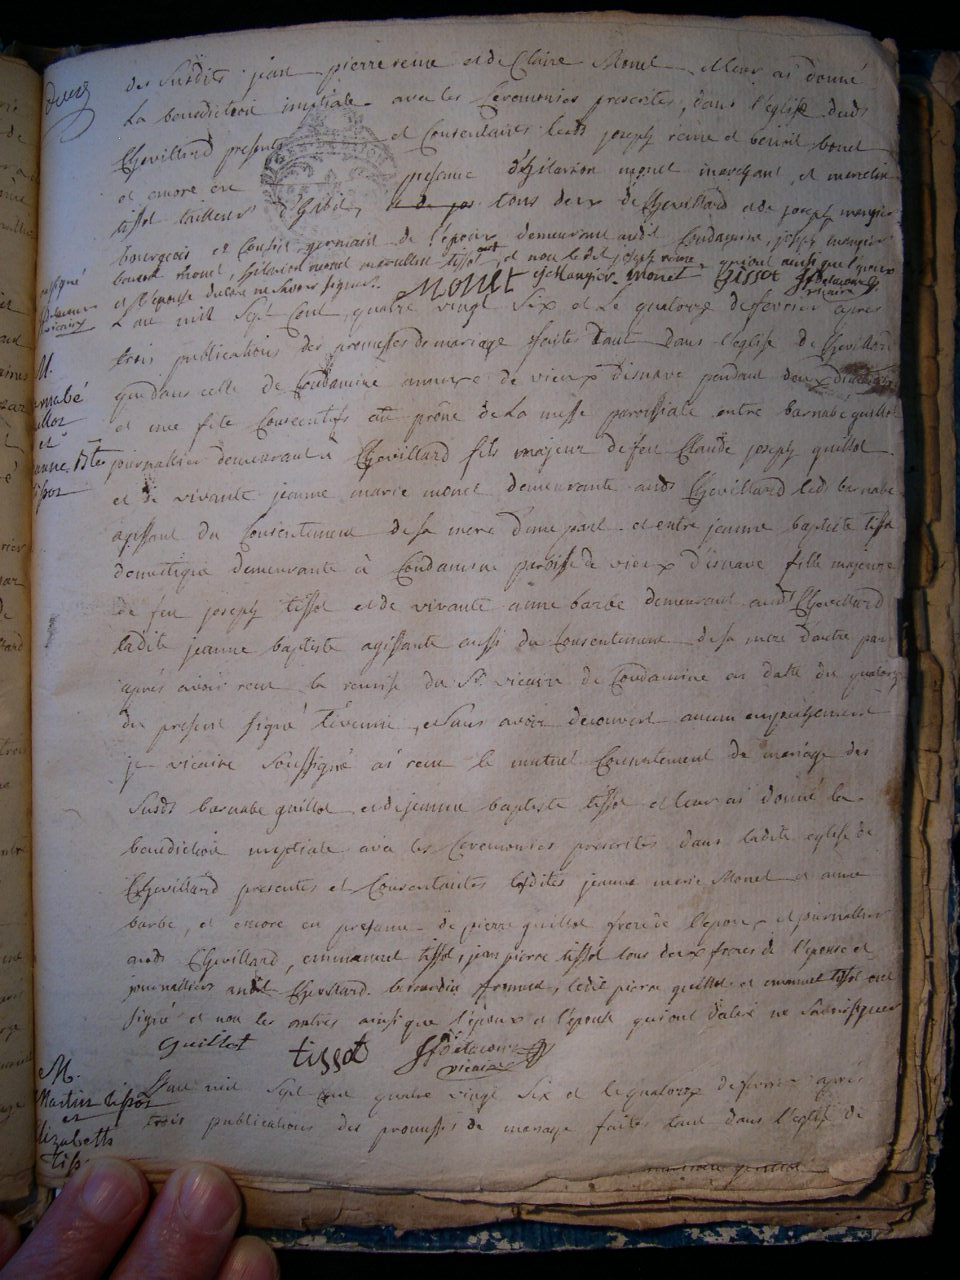 des susdits jean pierre reine et de Claire Monet et leur ai donné
La benediction nuptiale avec les Ceremonies prescrites, dans l'église dud
Chevillard presents et Consentants lesds joseph reine et benoit bonet
et encore en presence d'hilarion monet marchant, et marcelin
tissot tailleur d'habit, tous deux de Chevillard et de joseph
bourgeois et Cousin germain de l'epoux demeurant audit Condamine, joseph
et l'epouse de ce ne savoir signer. Monet monet Tissot
vicaire
L'an mil Sept Cent quatre vingt Six et Le quatorze de fevrier après
trois publications des promesses de mariage faites tant dans l'eglise de Chevillard
que dans celle de Condamine annexe de vieux d'isnave pendant deux dimanches
et une fete Consecutifs au prône de La messe paroissiale entre barnabé guillot
journallier demeurant à Chevillard fils majeur de feu Claude joseph guillot
et de vivante jeanne marie monet demeurante auds Chevillard leds barnabé
agissant du Consentement de sa mere d'une part et entre jeanne baptiste tissot
domestique demeurante à Condamine paroisse de vieux d'isnave fille majeure
de feu joseph tissot et de vivante anne barbe demeurant auds Chevillard
ladite jeanne baptiste agissante aussi du Consentement de sa mere d'autre part
après avoir reçu la remise du Sr. vicaire de Condamine en datte du quatorze
du present signé tévenin, et sans avoir decouvert aucun empeschement
je vicaire soussigné ai reçu le mutuel Consentement de mariage des
susds barnabé guillot et de jeanne baptiste tissot et leur ai donné la
benediction nuptiale avec les Ceremonies prescrites dans ladite eglise de
Chevillard presentes et Consentantes lesdites jeanne marie Monet et anne
barbe, et encore en presence de pierre guillot frere de l'epoux et journallier
auds Chevillard, emmanuel tissot, jean pierre tissot tous deux freres de l'epouse et
journalliers audit Chevillard. ledit pierre guillot et emanuel tissot ont
signé et non les autres ainsi que l'époux et l'épouse qui ont déclaré ne savoir signer
guillot tissot
vicaire
M.
Martin tissot
et
Elizabeth
tiss.
L'an mil Sept Cent quatre vingt Six et le quatorze de fevrier après
trois publications des promesses de mariage faites tant dans l'eglise de